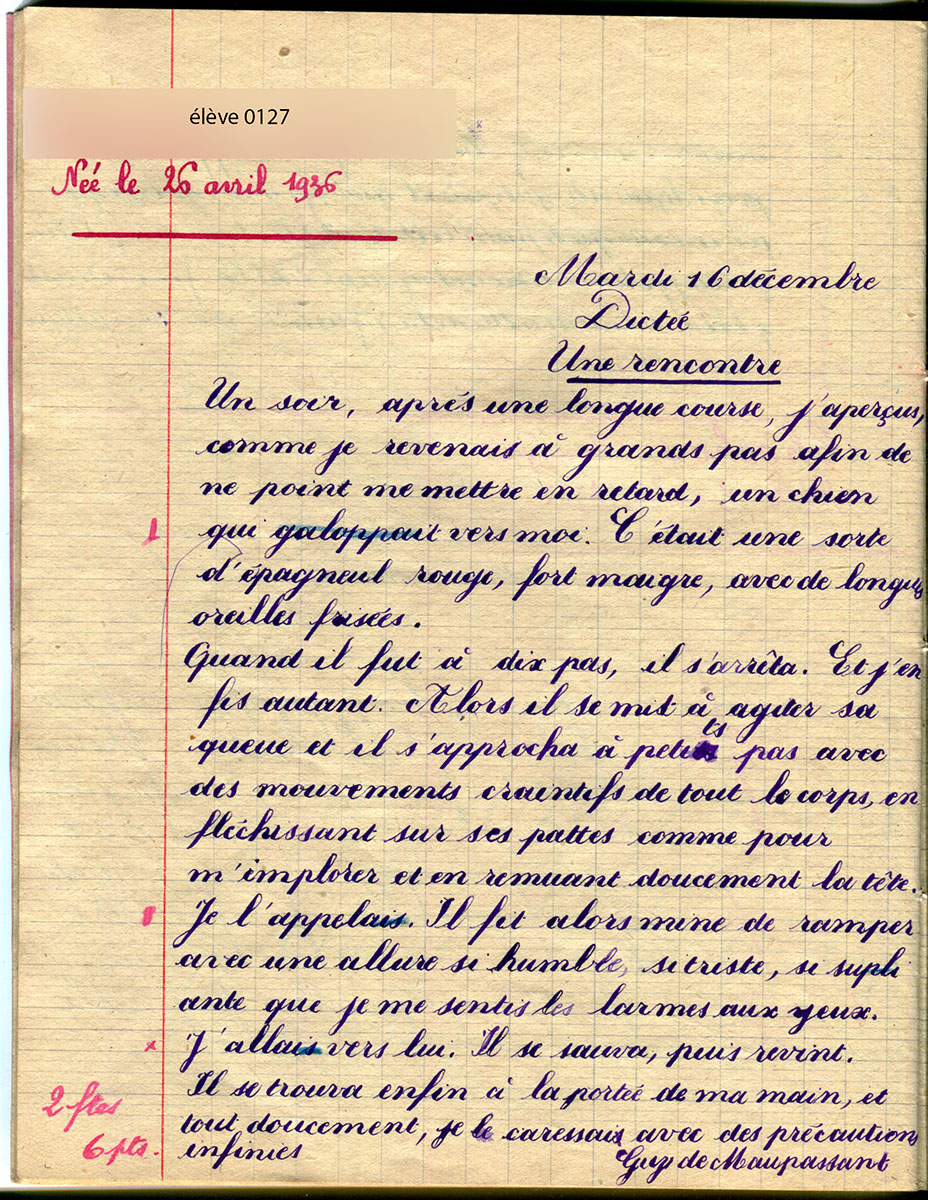 élève 0127
Née le 26 avril 1936
Mardi 16 décembre
Dictée
Une rencontre
Un soir, aprés une longue course, j'aperçus,
comme je revenais à grands pas afin de
ne point me mettre en retard, un chien
1 qui galoppait vers moi. C'était une sorte
d'épagneul rouge, fort maigre, avec de longues
oreilles frisées.
Quand il fut à dix pas, il s'arrêta. Et j'en
fis autant. Alors il se mit à agiter sa
queue et il s'approcha à petits pas avec
des mouvements craintifs de tout le corps, en
fléchissant sur ses pattes comme pour
m'implorer et en remuant doucement la tête.
Je l'appelais. Il fit alors mine de ramper
avec une allure si humble, si triste, si supli
ante que je me sentis les larmes aux yeux.
x J'allais vers lui. Il se sauva, puis revint.
Il se trouva enfin à la portée de ma main, et
tout doucement, je le caressais avec des précautions
infinies
2 ftes
6 pts.
Guy de Maupassant